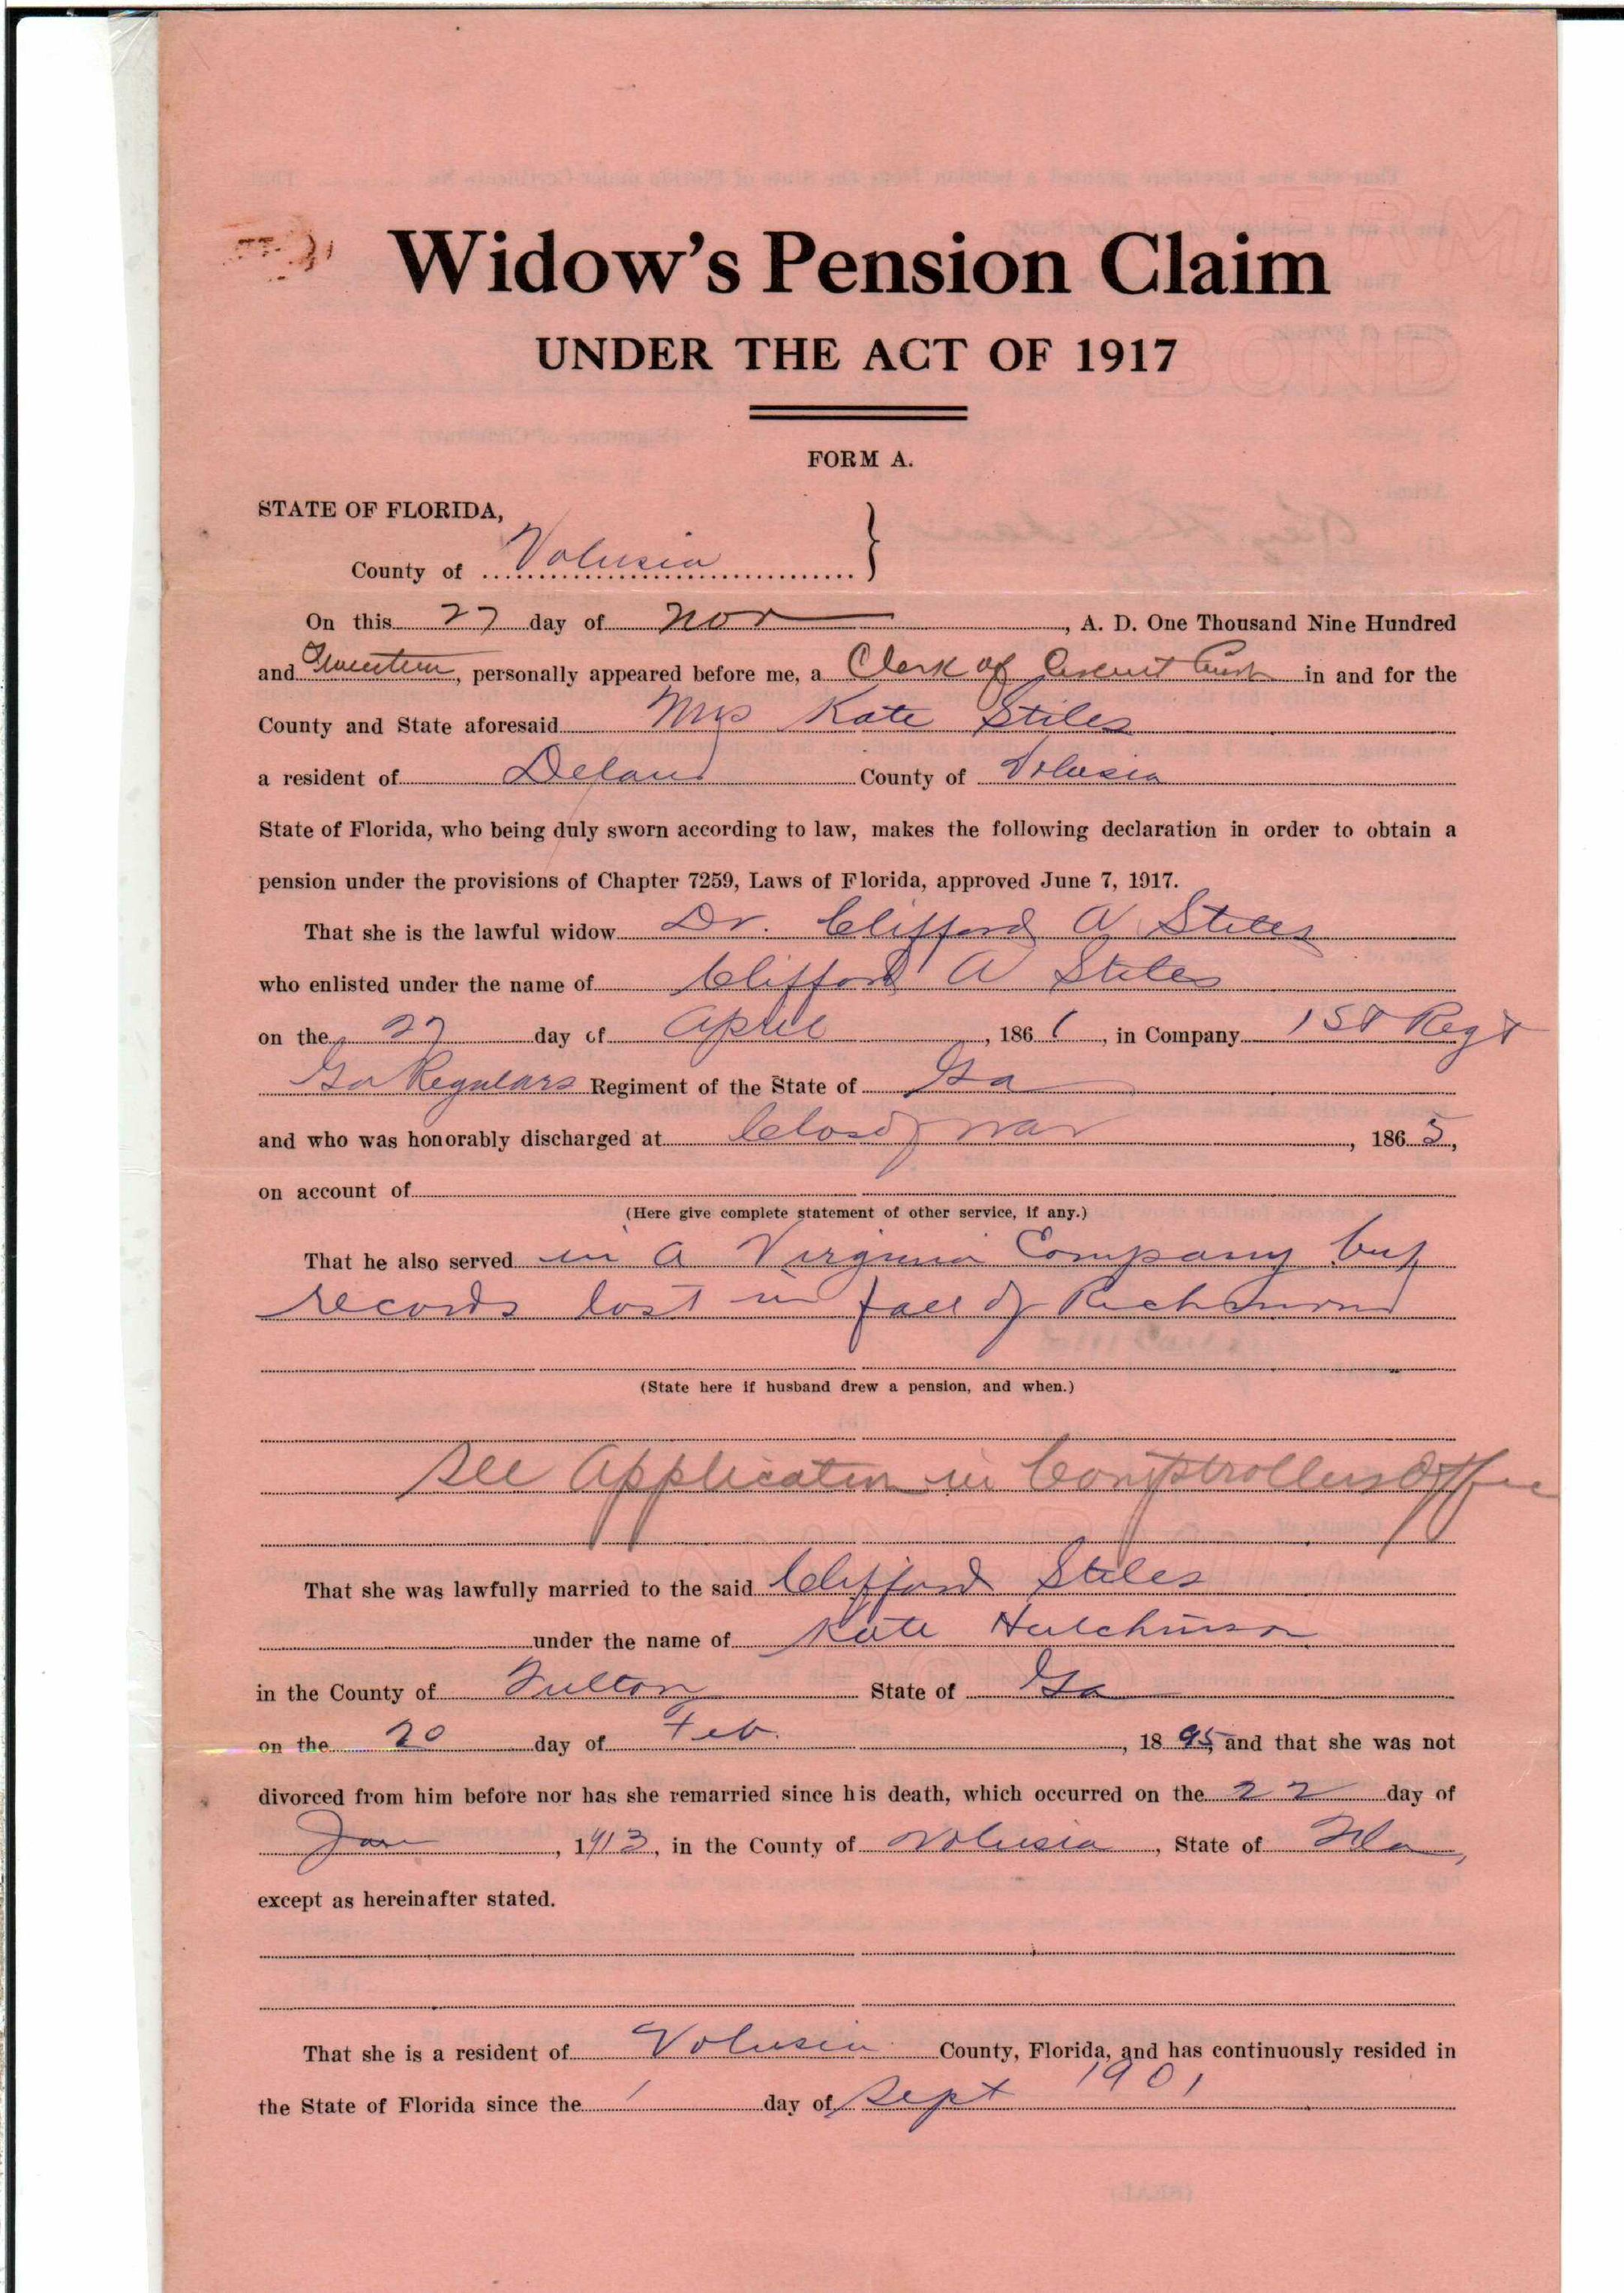 Widow's Pension Claim
UNDER THE ACT OF 1917
FORM A.
STATE OF FLORIDA,
County of Volusia
On this 27 day of Nov, A. D. One Thousand Nine Hundred
and , personally appeared before me, a Clerk of Circuit Court in and for the
County and State aforesaid Mrs Kate Stiles
a resident of Deland County of Volusia
State of Florida, who being duly sworn according to law, makes the following declaration in order to obtain a
pension under the provisions of Chapter 7259, Laws of Florida, approved June 7, 1917.
That she is the lawful widow Dr. Clifford A Stiles
who enlisted under the name of Clifford A Stiles
on the 27 day of April, 1861, in Company 1st Regt
Ga Regulars Regiment of the State of Ga
and who was honorably discharged at Close of war, 1865,
on account of
(Here give complete statement of other service, if any.)
That he also served in a Virginia Company but
records lost in fall of Richmond
(State here if husband drew a pension, and when.)
See Application in Comptrollers Office
That she was lawfully married to the said Clifford Stiles
under the name of Kate Hutchinson
in the County of Fulton State of Ga
on the 20 day of Feb., 1895, and that she was not
divorced from him before nor has she remarried since his death, which occurred on the 22 day of
Jan, 1913, in the County of Volusia, State of Fla,
except as hereinafter stated.
That she is a resident of Volusia County, Florida, and has continuously resided in
the State of Florida since the 1 day of Sept 1901